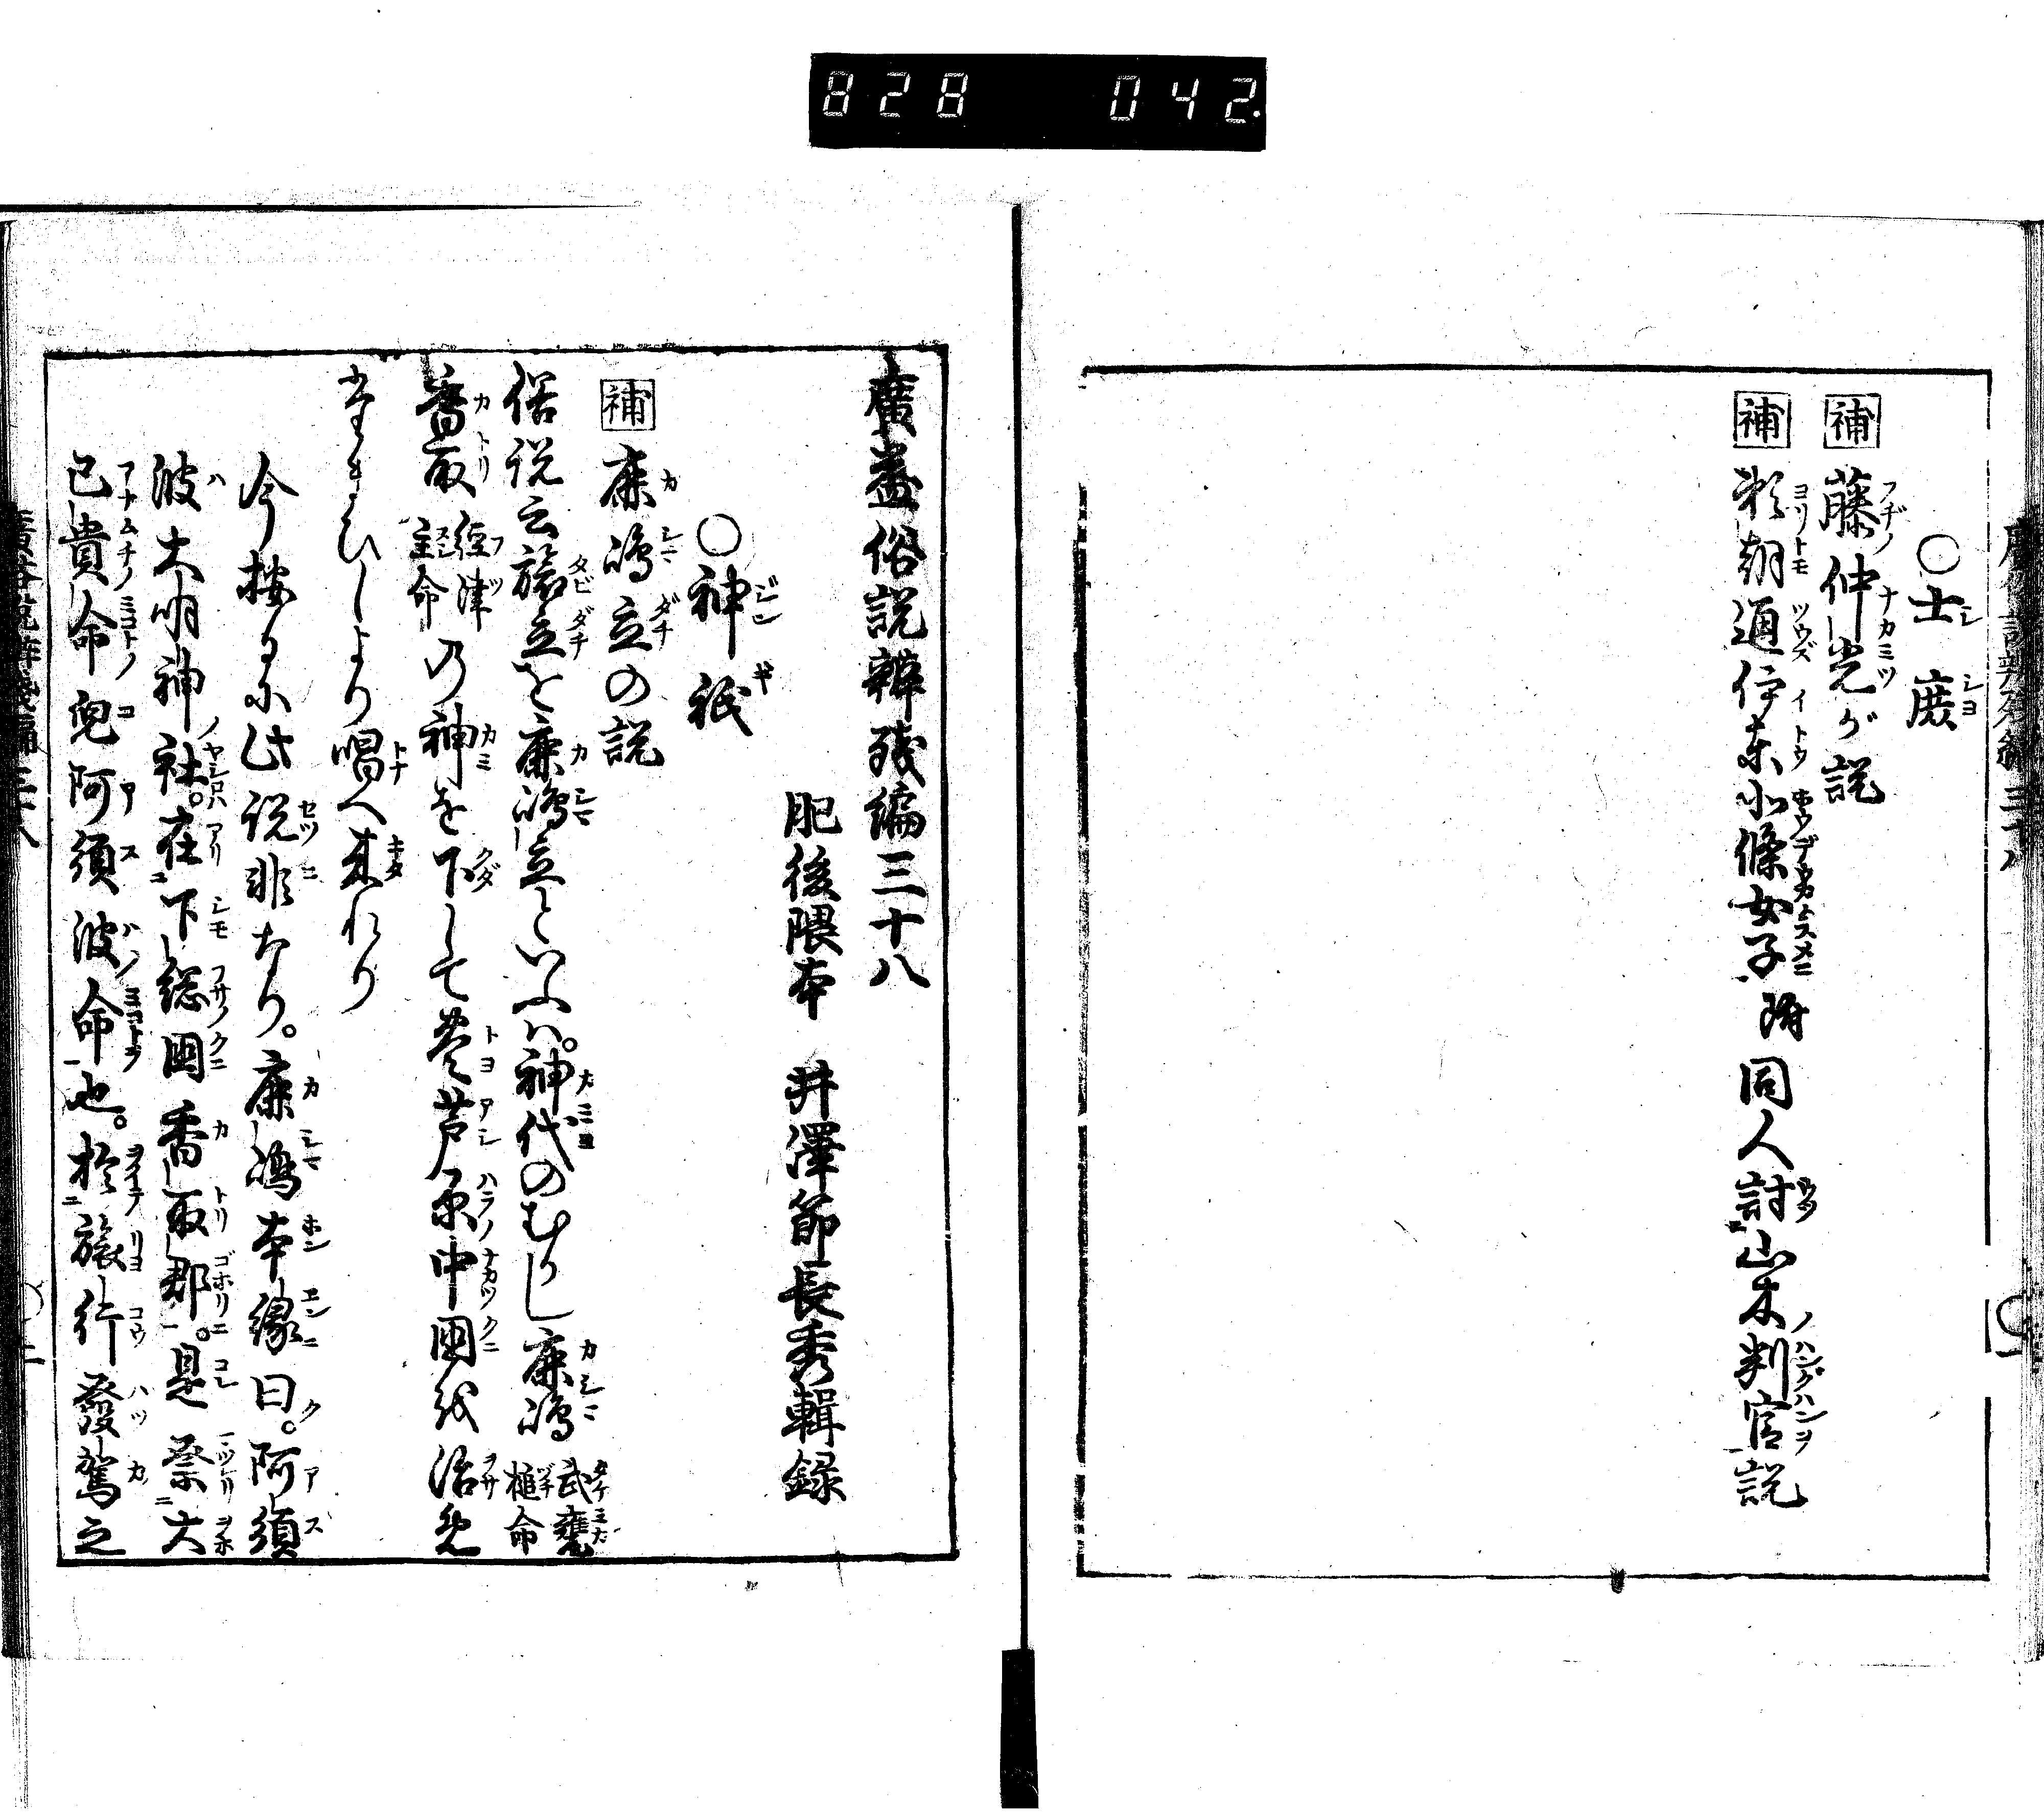 828 042
○士庶
補 藤仲光が説
補 頼朝通伊東北條女子附同人討山木判官説
廣益俗説辯残編三十八
肥後隈本 井澤節長秀輯録
○神祇
補 鹿嶋立の説
俗説云旅立を鹿嶋立といふハ。神代のむかし鹿嶋武甕槌命
香取經津主命の神を下して豊芦原中國を治めしめ
たまひしより唱へ来れり
今按るに此説非なり。鹿嶋本縁曰。阿須
波大明神社。在下総国香取郡。是祭大
已貴命兒阿須波命也。於旅行發駕之